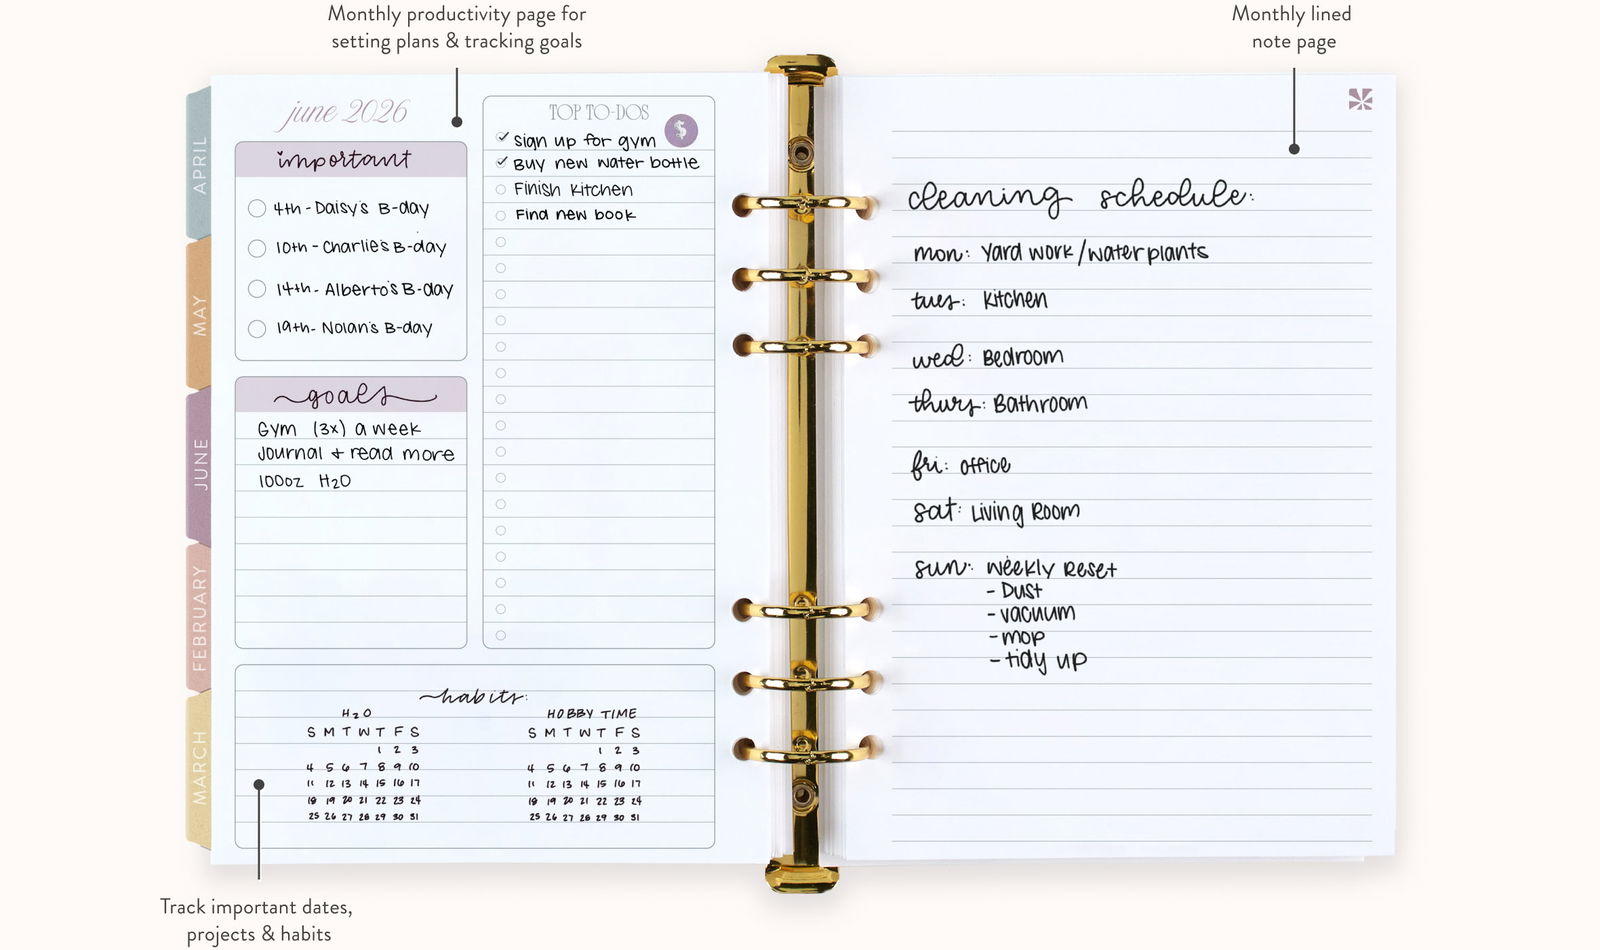 Monthly productivity page for
setting plans & tracking goals
Monthly lined
note page
APRIL
MAY
JUNE
FEBRUARY
MARCH
june 2026
important
4th - Daisy's B-day
10th - Charlie's B-day
14th - Alberto's B-day
19th - Nolan's B-day
goals
Gym (3x) a week
Journal + read more
100oz H2O
TOP TO-DOS
$
Sign up for gym
Buy new water bottle
Finish Kitchen
Find new book
habits:
H2O
S M T W T F S
1 2 3
4 5 6 7 8 9 10
11 12 13 14 15 16 17
18 19 20 21 22 23 24
25 26 27 28 29 30 31
HOBBY TIME
S M T W T F S
1 2 3
4 5 6 7 8 9 10
11 12 13 14 15 16 17
18 19 20 21 22 23 24
25 26 27 28 29 30 31
Track important dates,
projects & habits
cleaning schedule:
mon: Yard work/water plants
tues: Kitchen
wed: Bedroom
thurs: Bathroom
fri: office
sat: Living Room
sun: Weekly Reset
- Dust
- vacuum
- mop
- tidy up